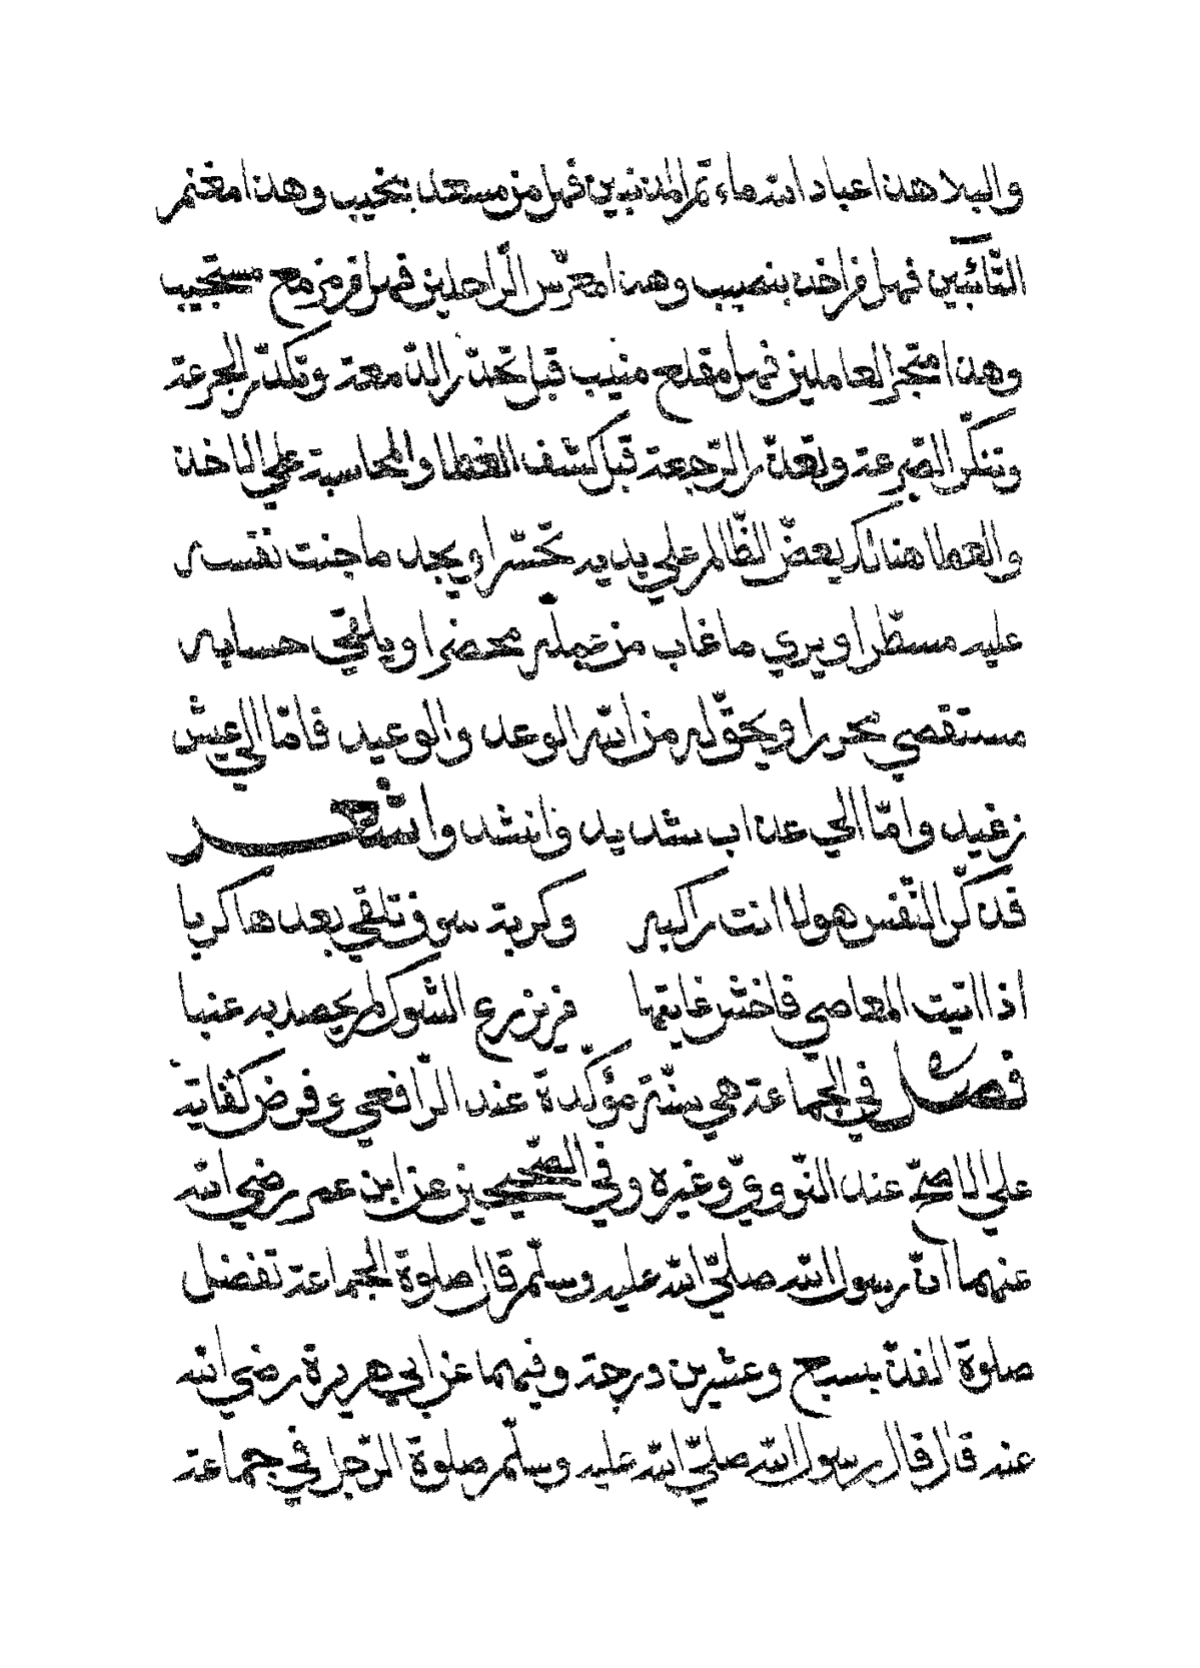 والبلا هذا عباد الله مأتم المذنبين فهل من مسعد بنحيب وهذا مغنم
التّائبين فهل فرّ اخذ بنصيب وهذا معرّس الرّاحلين فهل من مزمع مستجيب
وهذا متجر العاملين فهل مقلع منيب قبل تحدّر الدّمعة وتكدّر الجرعة
وتنكّر الصّرعة وتعذّر الرّجعة قبل كشف الغطا والمحاسبة على الاخذ
والعطا هنالك يعضّ الظّالم على يديه تحسّرا ويجد ما جنت نفسه
عليه مسطّرا ويري ما غاب من عمله محضرا ويلقى حسابه
مستقصي محررا ويحقّ له من الله الوعد والوعيد فامّا الى عيش
رغيد وامّا الى عذاب شديد وانشد واشعر
قد ذكّر النّفس هولا انت راكبه وكربة سوف تلقي بعدها كربا
اذا اتيت المعاصي فاخش غايتها من يزرع الشوك لم يحصد به عنبا
فصل في الجماعة هي سنّة مؤكّدة عند الرّافعي وفرض كفاية
على الاصحّ عند النّوويّ وغيره وفي الصّحيحين عن ابن عمر رضي الله
عنهما انّ رسول الله صلّى الله عليه وسلّم قال صلوة الجماعة تفضل
صلوة الفذّ بسبع وعشرين درجة وفيهما عن ابي هريرة رضي الله
عنه قال قال رسول الله صلّى الله عليه وسلّم صلوة الرّجل في جماعة